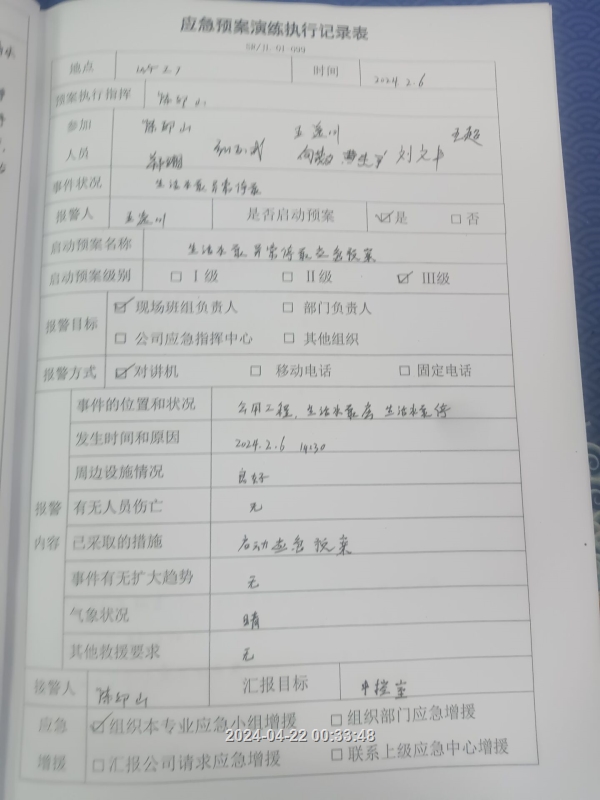 应急预案演练执行记录表
SB/JL-01-099
地点 时间 2024.2.6
预案执行指挥 陈印山
参加 陈印山 王莲川 王超
人员 刘文丰
事件状况 生活水泵异常停泵
报警人 王莲川 是否启动预案 ☑是 □否
启动预案名称 生活水泵异常停泵应急预案
启动预案级别 □ I级 □ II级 ☑ III级
报警目标 ☑现场班组负责人 □ 部门负责人
□ 公司应急指挥中心 □ 其他组织
报警方式 ☑对讲机 □ 移动电话 □固定电话
报警内容 事件的位置和状况 公用工程,生活水泵房 生活水泵停
发生时间和原因 2024.2.6 14:30
周边设施情况 良好
有无人员伤亡 无
已采取的措施 启动应急预案
事件有无扩大趋势 无
气象状况 晴
其他救援要求 无
接警人 陈印山 汇报目标 中控室
应急 ☑组织本专业应急小组增援 □组织部门应急增援
2024-04-22 00:33:48
增援 □汇报公司请求应急增援 □联系上级应急中心增援